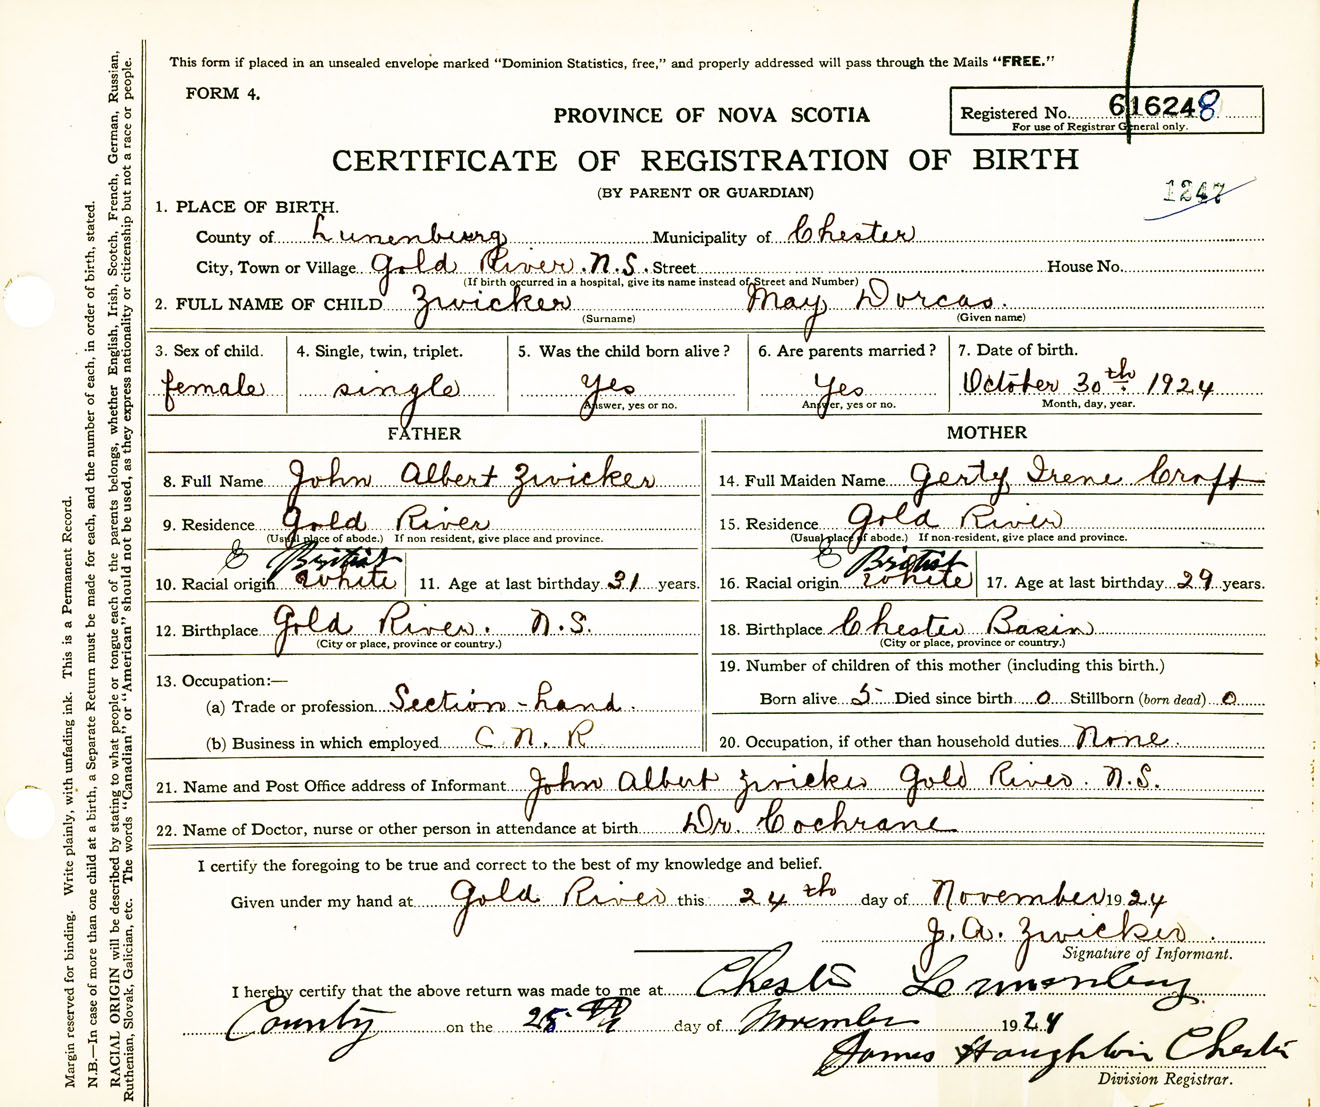 This form if placed in an unsealed envelope marked "Dominion Statistics, free," and properly addressed will pass through the Mails "FREE."
FORM 4.
PROVINCE OF NOVA SCOTIA
Registered No. 616248
For use of Registrar General only.
CERTIFICATE OF REGISTRATION OF BIRTH
(BY PARENT OR GUARDIAN)
1247
1. PLACE OF BIRTH.
County of Lunenburg Municipality of Chester
City, Town or Village Gold River. N.S. Street House No.
(If birth occurred in a hospital, give its name instead of Street and Number)
2. FULL NAME OF CHILD Zwicker May Dorcas.
(Surname) (Given name)
3. Sex of child. 4. Single, twin, triplet. 5. Was the child born alive? 6. Are parents married? 7. Date of birth.
female single Yes Yes October 30th 1924
Answer, yes or no. Answer, yes or no. Month, day, year.
FATHER MOTHER
8. Full Name John Albert Zwicker 14. Full Maiden Name Gerty Irene Croft
9. Residence Gold River 15. Residence Gold River
(Usual place of abode.) If non resident, give place and province. (Usual place of abode.) If non-resident, give place and province.
British British
10. Racial origin white 11. Age at last birthday 31 years. 16. Racial origin white 17. Age at last birthday 29 years.
12. Birthplace Gold River. N.S. 18. Birthplace Chester Basin
(City or place, province or country.) (City or place, province or country.)
13. Occupation:— 19. Number of children of this mother (including this birth.)
(a) Trade or profession Section-hand. Born alive 5 Died since birth 0 Stillborn (born dead) 0
(b) Business in which employed C.N.R 20. Occupation, if other than household duties None.
21. Name and Post Office address of Informant John Albert Zwicker Gold River. N.S.
22. Name of Doctor, nurse or other person in attendance at birth Dr. Cochrane
I certify the foregoing to be true and correct to the best of my knowledge and belief.
Given under my hand at Gold River this 24th day of November 1924
J. A. Zwicker.
Signature of Informant.
I hereby certify that the above return was made to me at Chester Lunenburg
County on the 25th day of November 1924
James Houghton Chester
Division Registrar.
Margin reserved for binding. Write plainly, with unfading ink. This is a Permanent Record.
N.B.—In case of more than one child at a birth, a Separate Return must be made for each, and the number of each, in order of birth, stated.
RACIAL ORIGIN will be described by stating to what people or tongue each of the parents belongs, whether English, Irish, Scotch, French, German, Russian,
Ruthenian, Slovak, Galician, etc. The words "Canadian" or "American" should not be used, as they express nationality or citizenship but not a race or people.